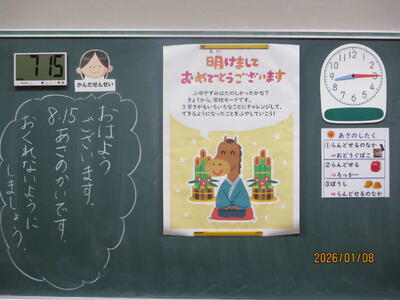 7:15
かんだせんせい
おはよう
ございます。
8:15 あさのかいです。
おくれないように
しましょう。
明けまして
おめでとうございます
ふゆやすみはたのしかったかな?
きょうから、学校モードです。
3学きがもいろいろなことにチャレンジして、
できるようになったことをふやしていこう!
あさのしたく
①らんどせるのなか
⇒おどうぐばこ
②らんどせる
⇒ろっかー
③ぼうし
⇒らんどせるのなか
2026/01/08